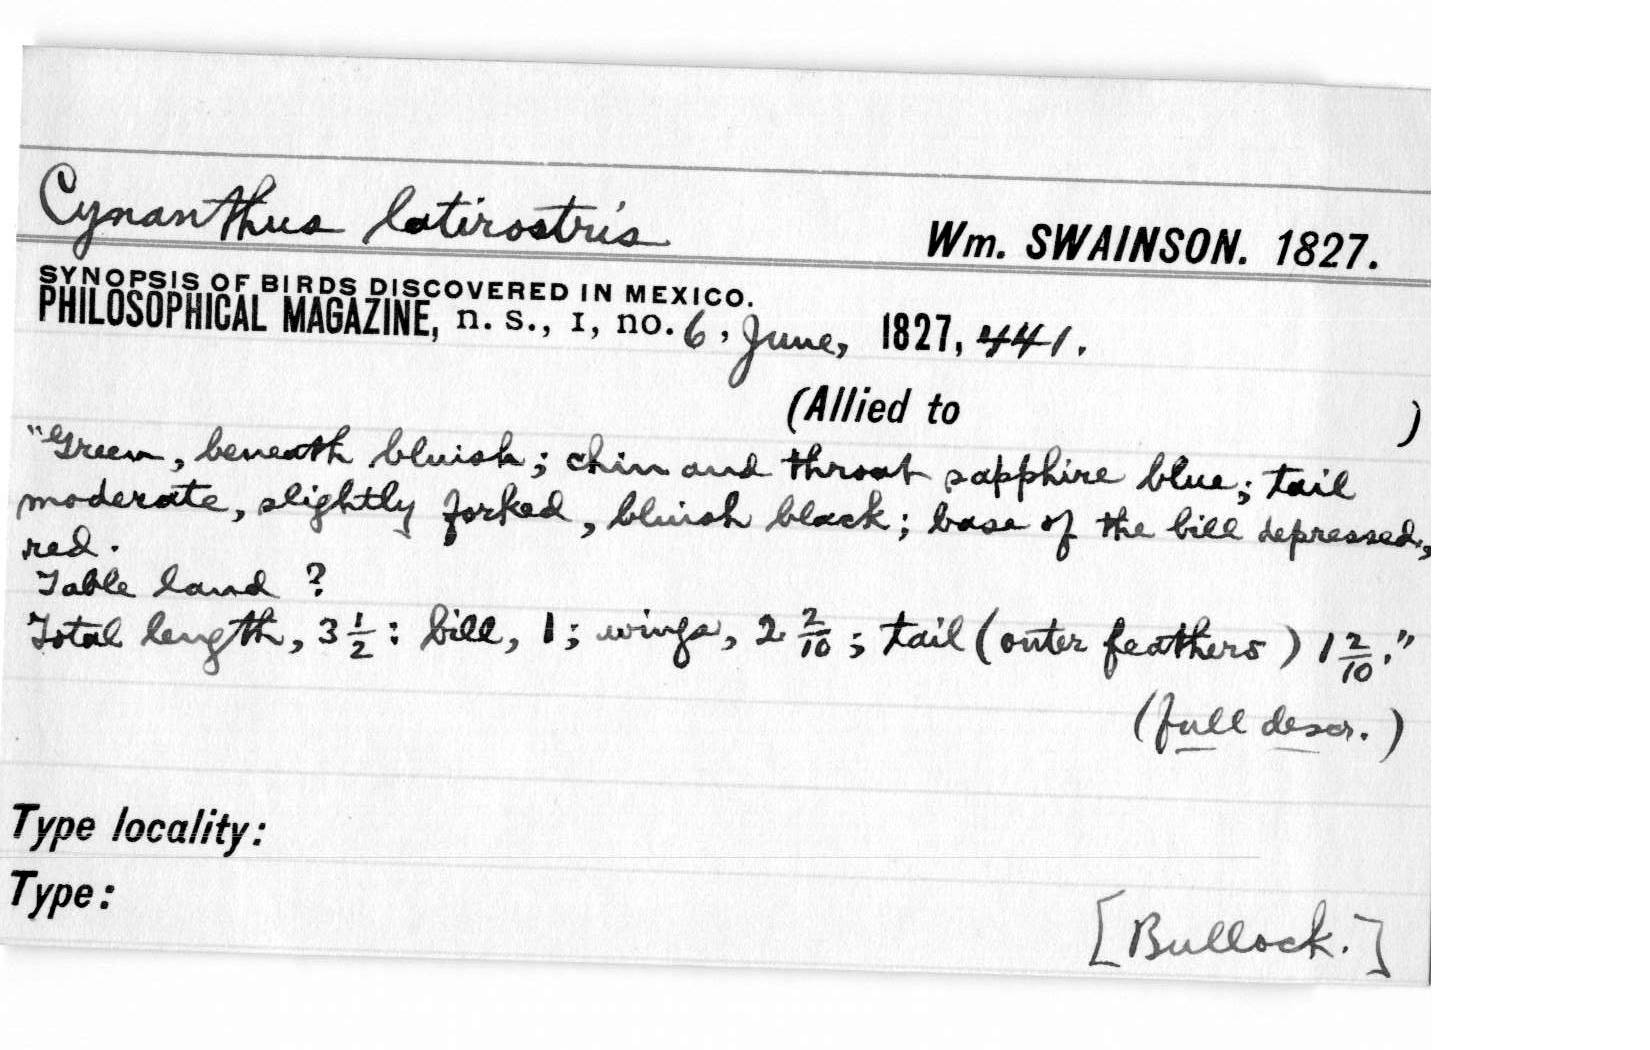 Cynanthus latirostris Wm. SWAINSON. 1827.
SYNOPSIS OF BIRDS DISCOVERED IN MEXICO.
PHILOSOPHICAL MAGAZINE, n. s., I, no. 6, June, 1827, 441.
(Allied to )
"Green, beneath bluish; chin and throat sapphire blue; tail
moderate, slightly forked, bluish black; base of the bill depressed,
red.
Table land ?
Total length, 3 1/2: bill, 1; wings, 2 2/10; tail (outer feathers) 1 2/10."
(full descr.)
Type locality:
Type:
[Bullock.]